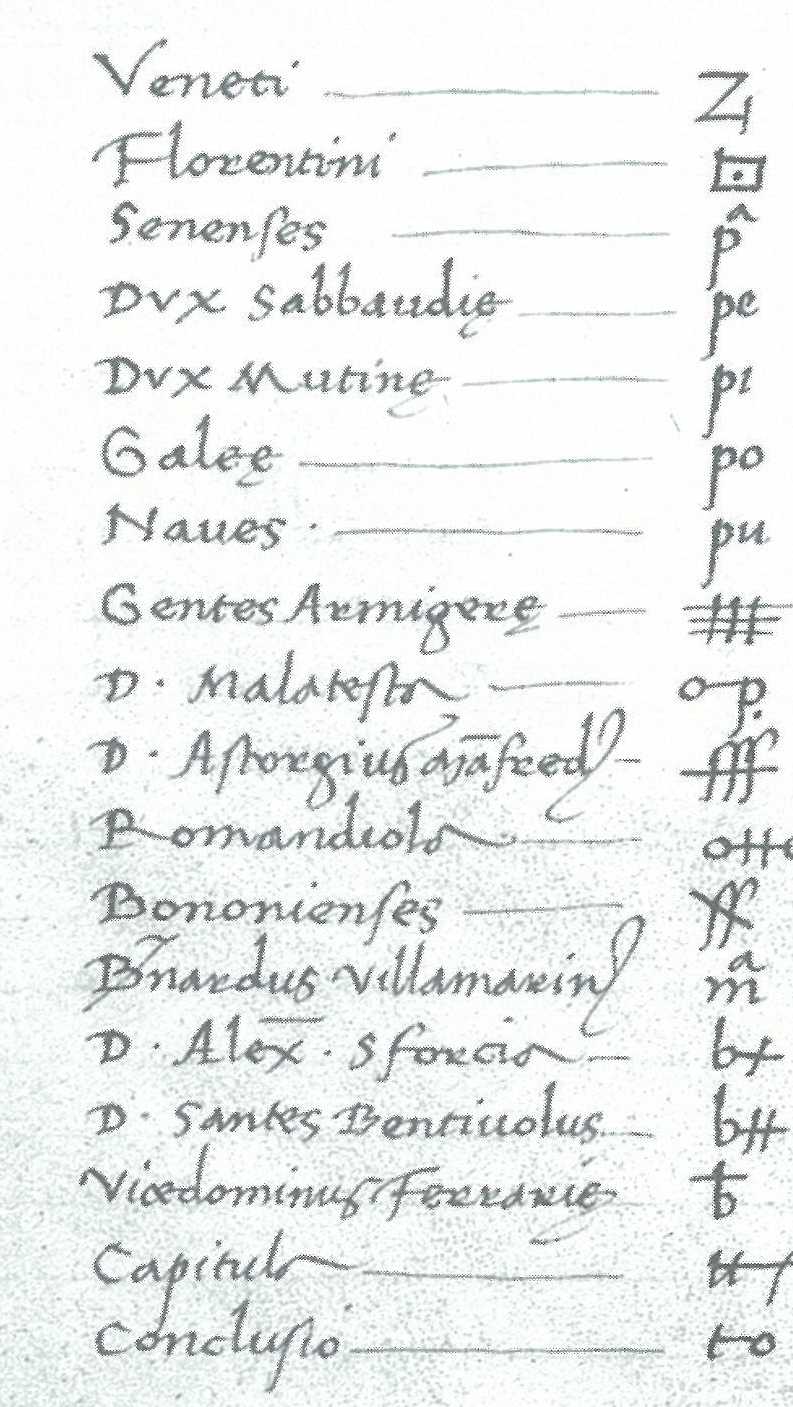 Veneti
Florentini
Senenses
Dvx Sabbaudię pe
Dvx Mutinę pi
Galeę po
Naues pu
Gentes Armigerę
D. Malatesta
D. Astorgius
Romandiola
Bononienses
Bnardus Villamarin
D. Alex. Sforcia
D. Santes Bentiuolus
Vicedominus Ferrarię
Capitula
Conclusio to